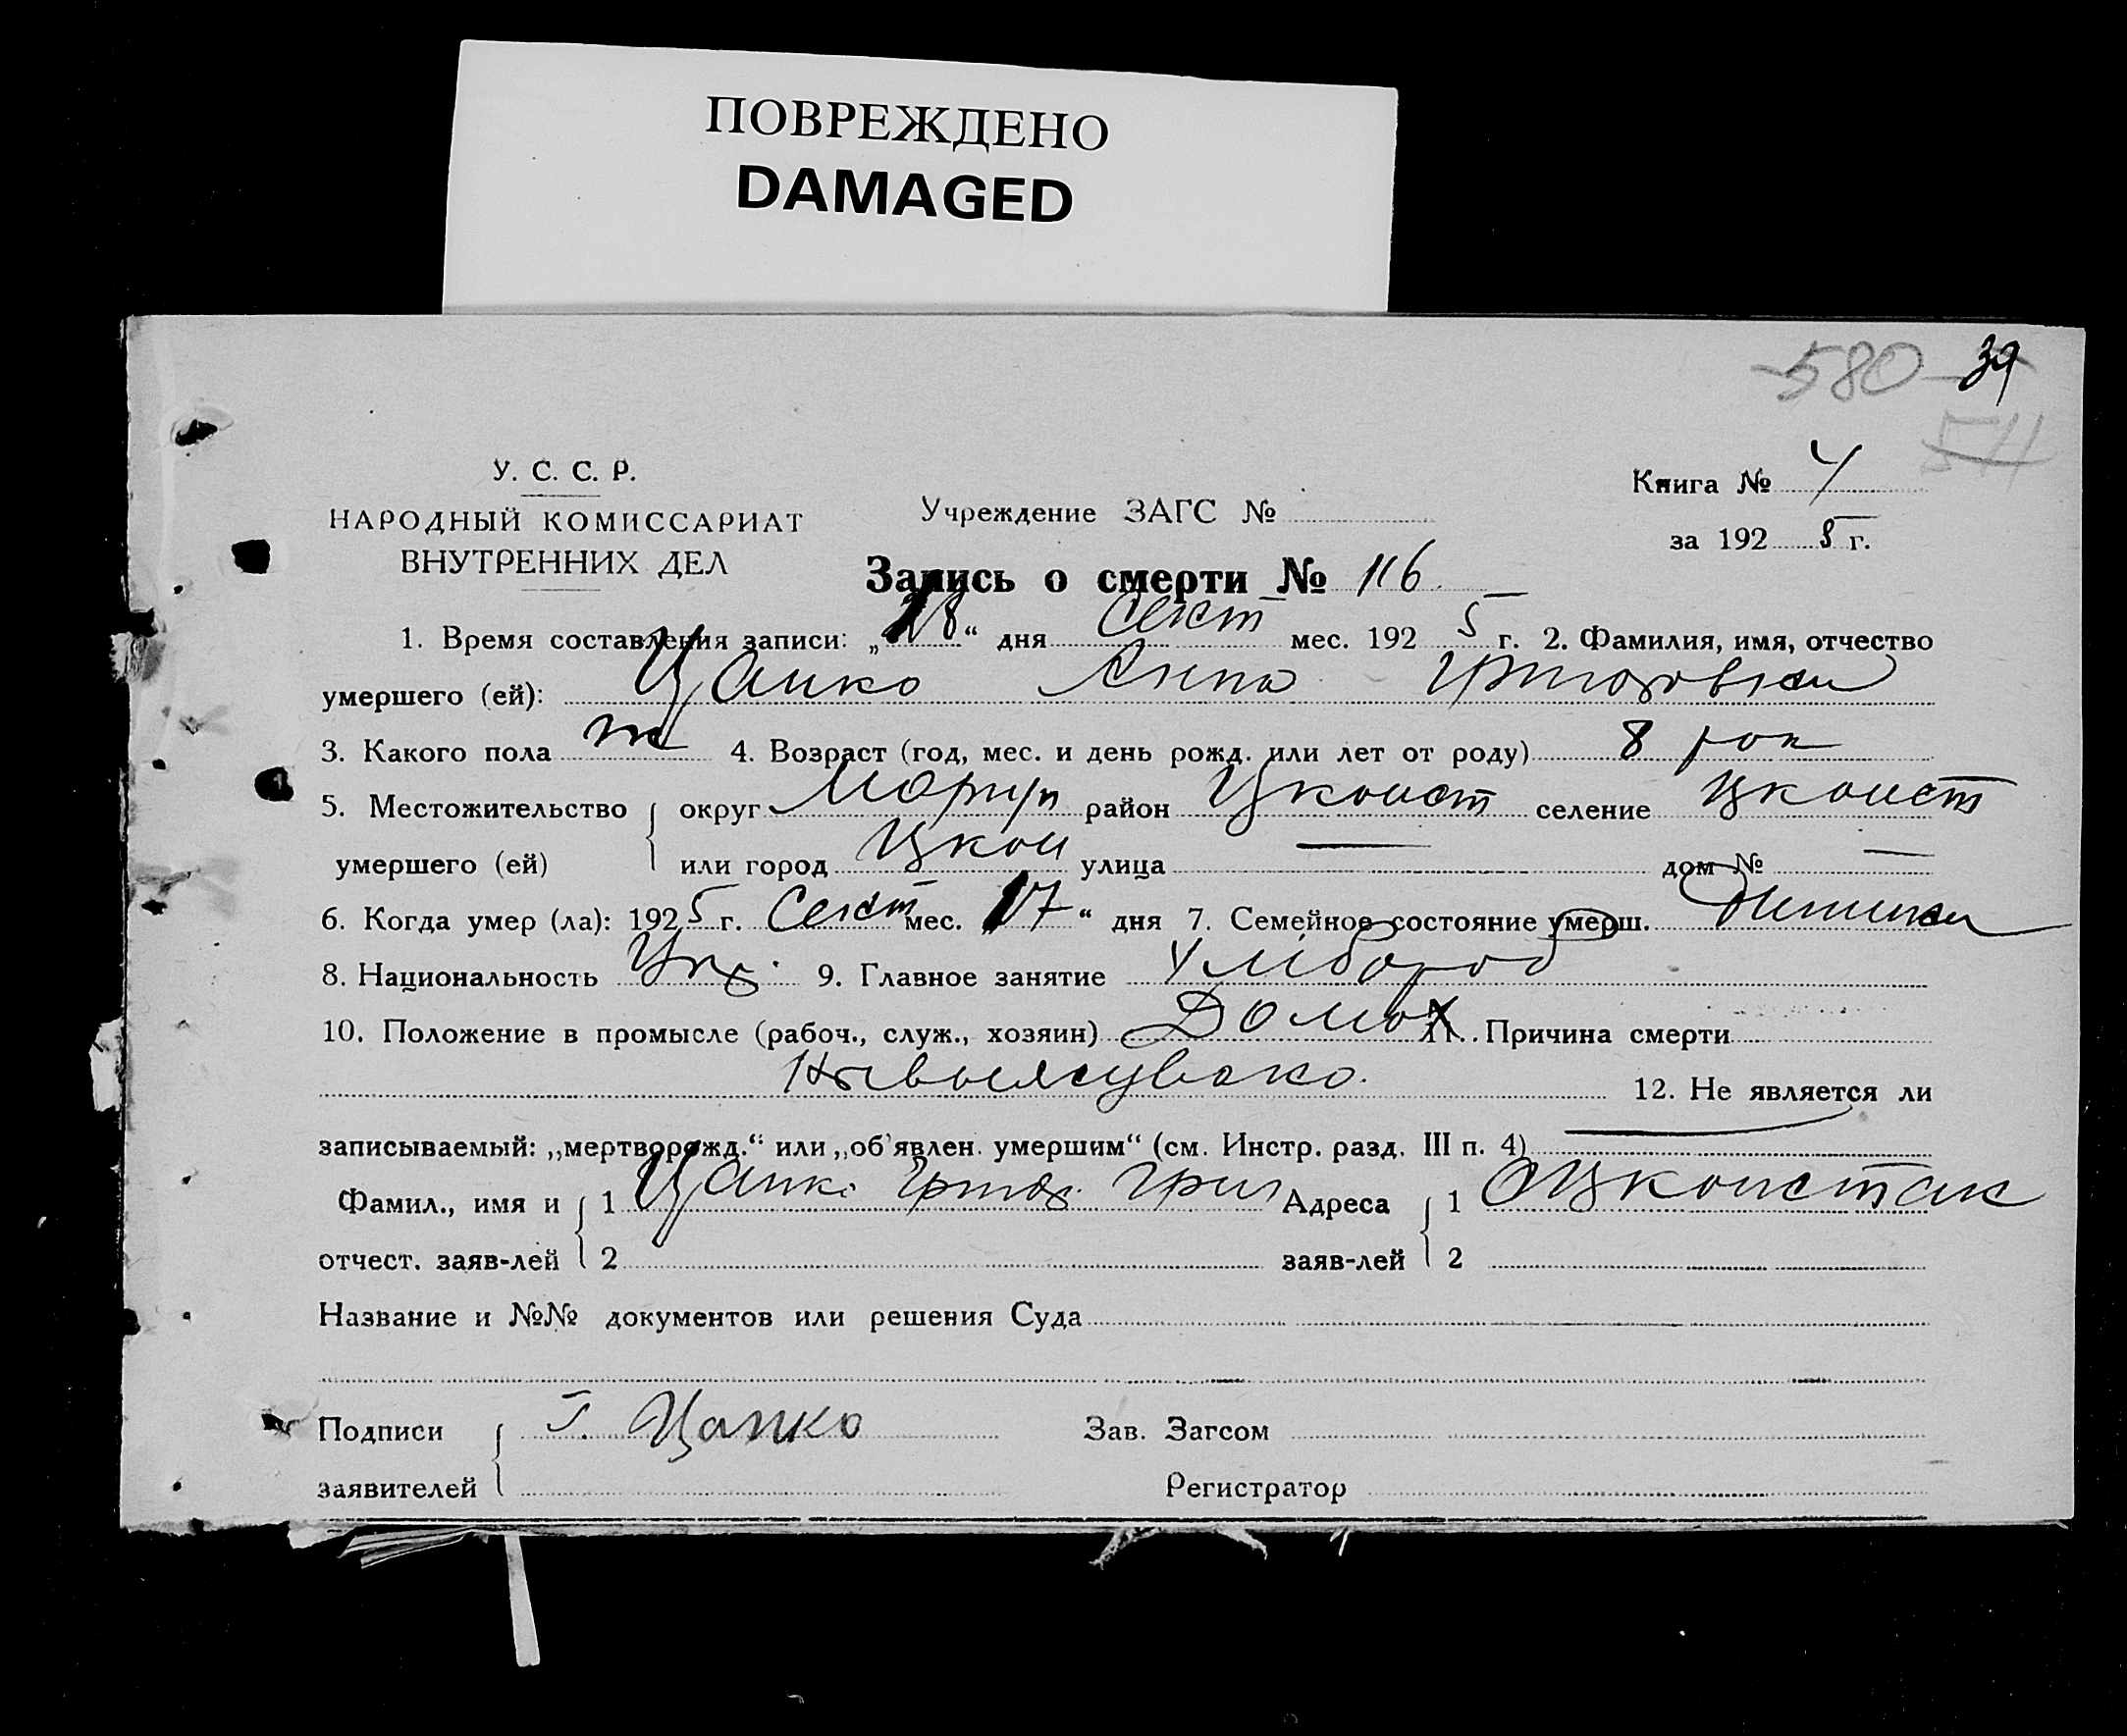 ПОВРЕЖДЕНО
DAMAGED
580 39
У. С. С. Р.
НАРОДНЫЙ КОМИССАРИАТ
ВНУТРЕННИХ ДЕЛ
Учреждение ЗАГС №
Книга № 4
за 1925 г.
Запись о смерти № 116
1. Время составления записи: „18“ дня Сент мес. 1925 г. 2. Фамилия, имя, отчество
умершего (ей): Цапко Анна
3. Какого пола ж 4. Возраст (год, мес. и день рожд. или лет от роду) 8 рок
5. Местожительство округ Мариуп район Цконст селение Цконст
умершего (ей) или город улица — дом № —
6. Когда умер (ла): 1925 г. Сент мес. „17“ дня 7. Семейное состояние умерш.
8. Национальность Укр. 9. Главное занятие Хлібороб
10. Положение в промысле (рабоч., служ., хозяин) 11. Причина смерти
12. Не является ли
записываемый: „мертворожд.“ или „об'явлен. умершим“ (см. Инстр. разд. III п. 4)
Фамил., имя и 1 Цапко Григ. Григ Адреса 1
отчест. заяв-лей 2 заяв-лей 2
Название и №№ документов или решения Суда
Подписи Г. Цапко Зав. Загсом
заявителей Регистратор